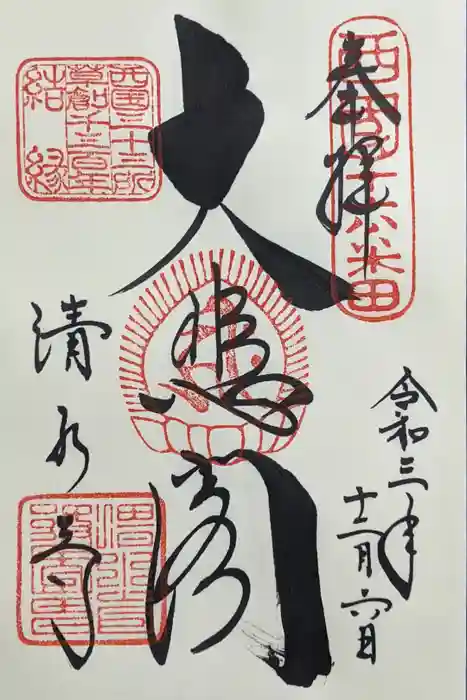 西国十六番
奉拝
令和三年
十二月六日
大悲閣
西国三十三所
草創千三百年
結縁
清水寺